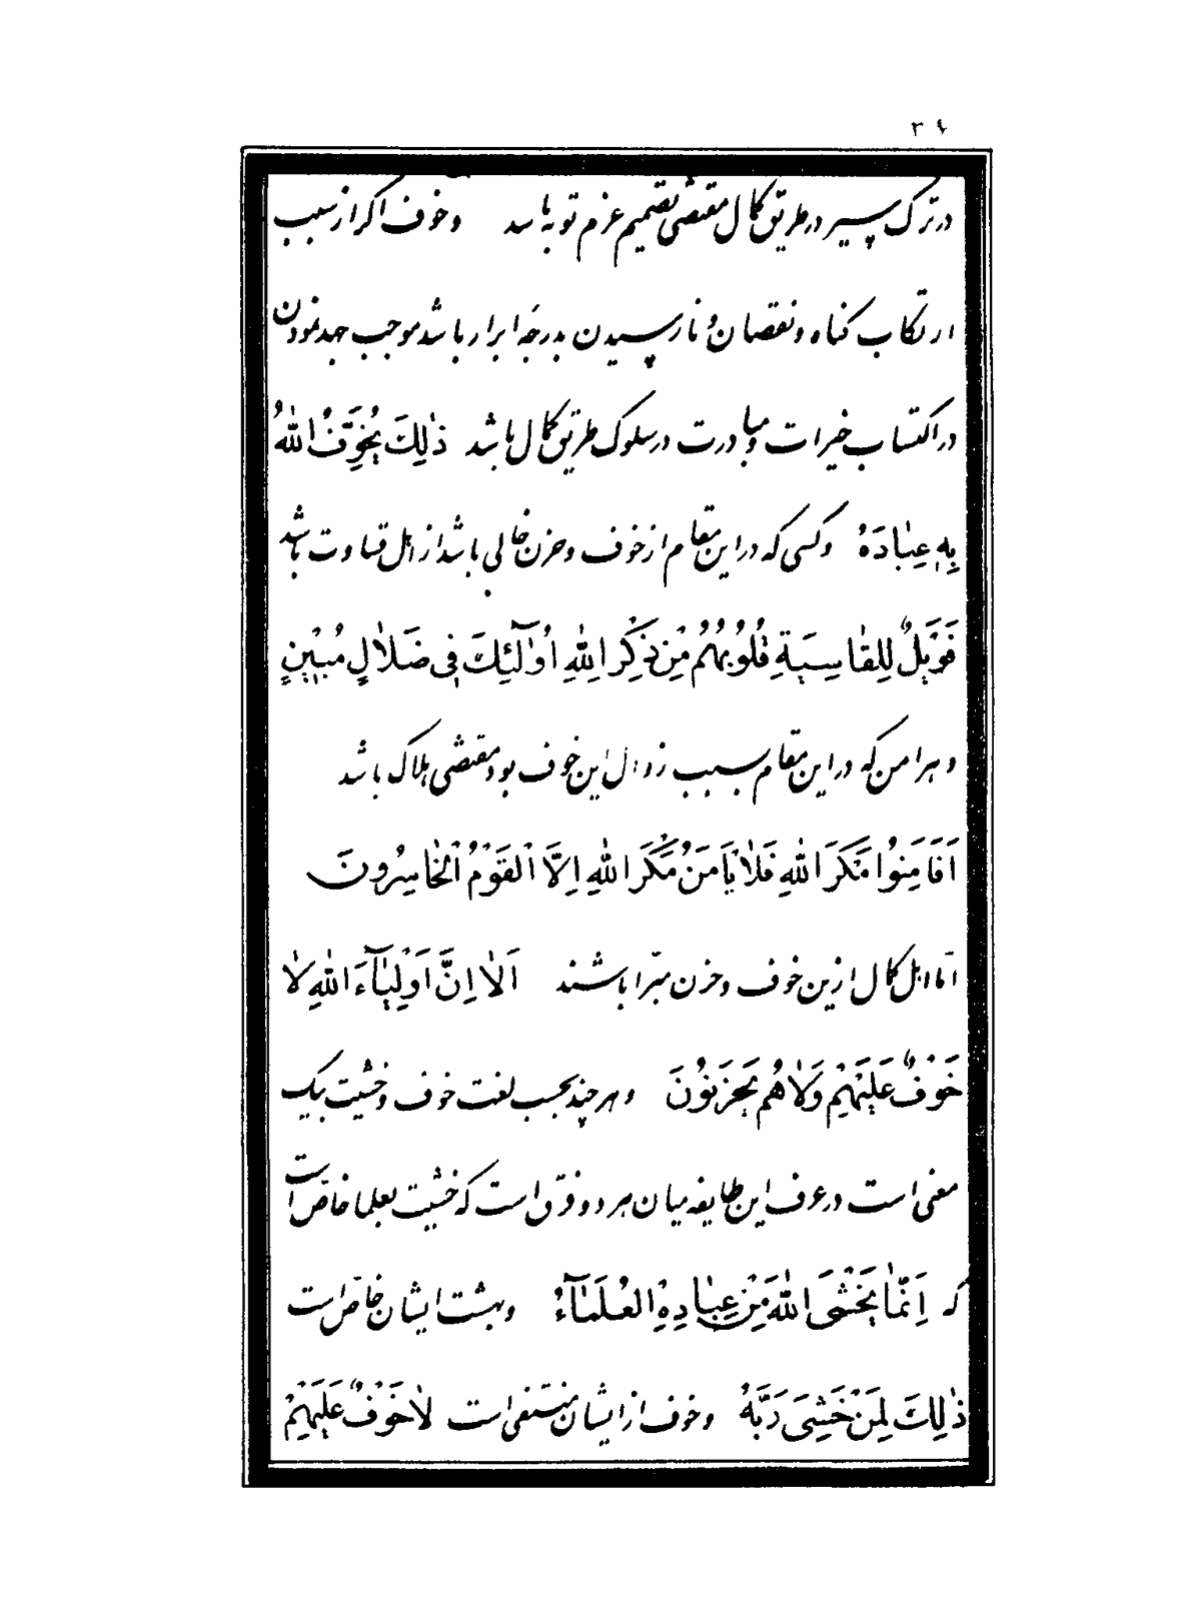 ۳۹
در ترک سیر در طریق کمال مقتضی تصمیم عزم توبه باشد و خوف اگر از سبب
ارتکاب گناه و نقصان و نارسیدن بدرجهٔ ابرار باشد موجب جهد نمودن
در اکتساب خیرات و مبادرت در سلوک طریق کمال باشد ذٰلِكَ يُخَوِّفُ اللهُ
بِهِ عِبٰادَهُ و کسی که در این مقام از خوف و حزن خالی باشد از اهل قساوت باشد
فَوَيْلٌ لِلقٰاسِيَةِ قُلُوبُهُمْ مِنْ ذِكْرِ اللهِ اُولٰٓئِكَ فِي ضَلاٰلٍ مُبْيِنٍ
و هر امن که در این مقام بسبب زوال این خوف بود مقتضی هلاک باشد
اَفَاَمِنُوا مَكْرَ اللهِ فَلاٰ يَاْمَنُ مَكْرَ اللهِ اِلَّا الْقَوْمُ الْخٰاسِرُونَ
امّا اهل کمال ازین خوف و حزن مبّرا باشند اَلاٰ اِنَّ اَوْلِيٰآءَ اللهِ لاٰ
خَوْفٌ عَلَيْهِمْ وَلاٰ هُمْ يَحْزَنُونَ و هر چند بحسب لغت خوف و خشیت بیک
معنی است در عرف این طایفه میان هر دو فرق است که خشیت بعلما خاصّ است
که اِنَّمٰا يَخْشَى اللهَ مِنْ عِبٰادِهِ الْعُلَمٰآءُ و بهشت ایشان خاصّ است
ذٰلِكَ لِمَنْ خَشِىَ رَبَّهُ و خوف از ایشان منتفی است لاٰ خَوْفٌ عَلَيْهِمْ